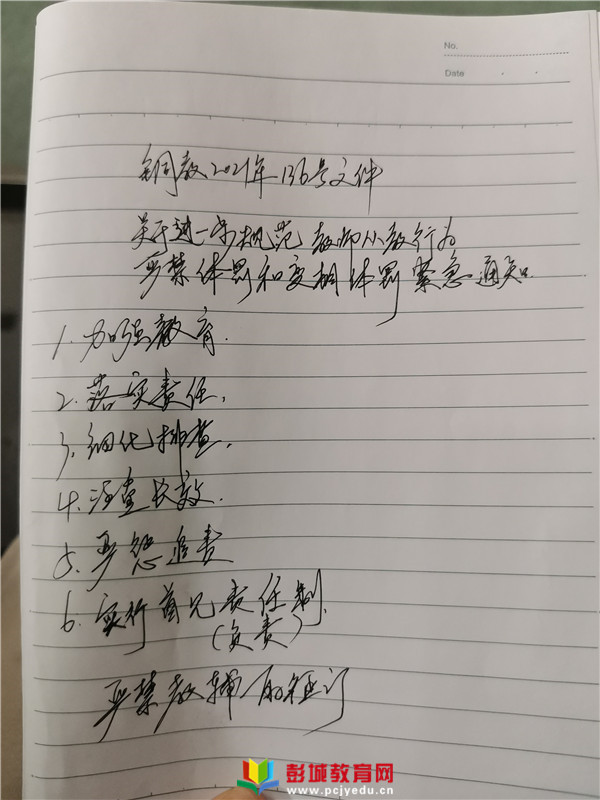 No.
Date
铜教2021年136号文件
关于进一步规范教师从教行为
严禁体罚和变相体罚紧急通知
1、加强教育.
2、落实责任,
3、细化排查,
4、注重长效.
5、严惩追责
6、实行首见责任制,
(负责)
严禁教辅征订
彭城教育网
www.pcjyedu.cn